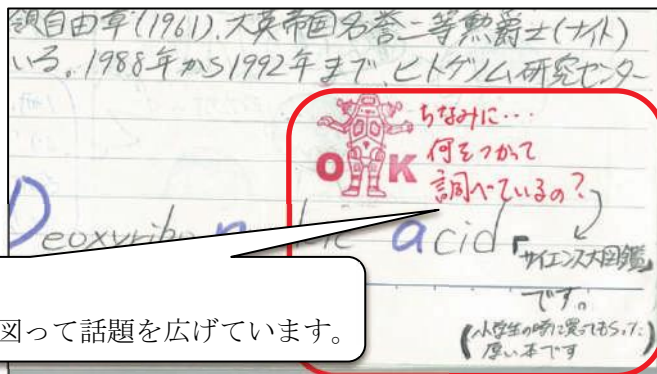 領自由章(1961), 大英帝国名誉二等勲爵士(ナイト)
いる。1988年から1992年まで、ヒトゲノム研究センター
OK
ちなみに…
何をつかって
調べているの?
Deoxyribo acid
「サイエンス大図鑑」
です。
(小学生の時に買ってもらった
厚い本です)
図って話題を広げています。